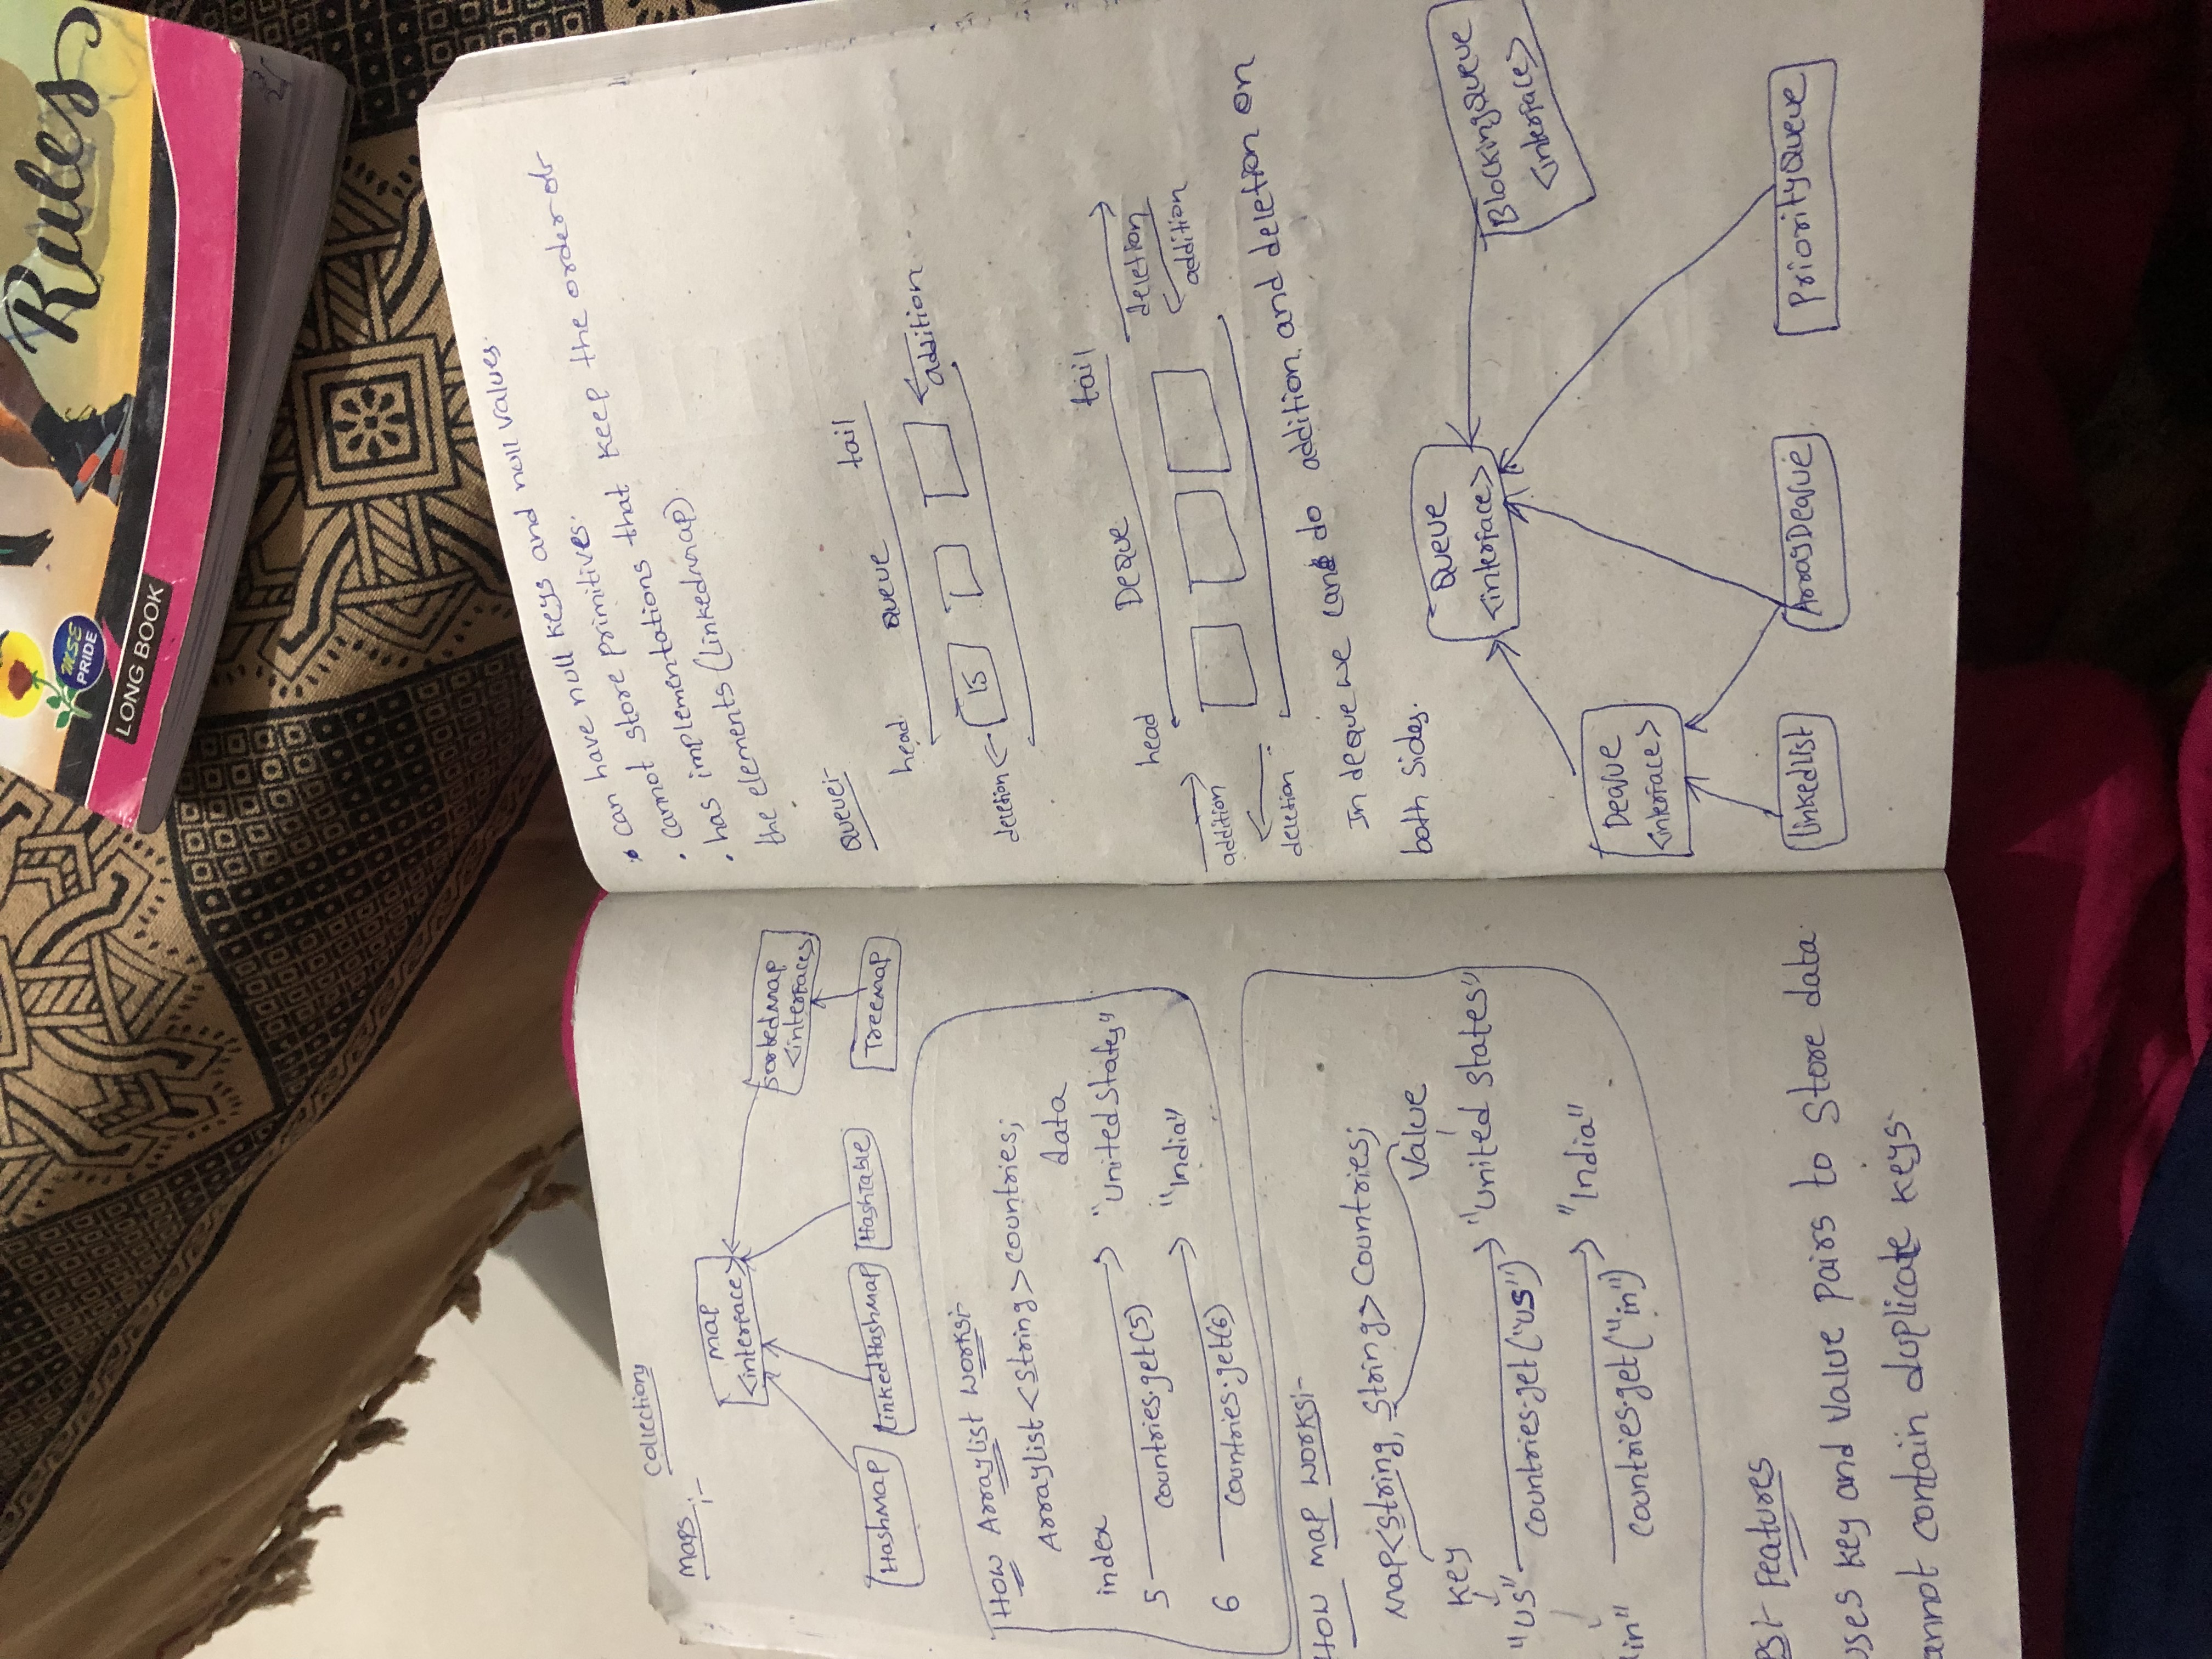 Rules
MSE
PRIDE
LONG BOOK
Collections
Maps:-
Map
<interface>
SortedMap
<interface>
HashMap
LinkedHashMap
HashTable
TreeMap
How Arraylist works:-
Arraylist<String>countries;
data
index
5
countries.get(5)
"United States"
6
countries.get(6)
"India"
How map works:-
Map<String, String>countries;
Value
key
"US"
countries.get("US")
"United States"
in"
countries.get("in")
"India"
Features
uses key and value pairs to store data.
annot contain duplicate keys.
• can have null keys and null values.
• cannot store primitives.
• has implementations that keep the order of
the elements (Linkedmap).
Queue:-
head
Queue
tail
15
addition
deletion
head
Deque
tail
deletion
addition
addition
deletion
In deque we can do addition and deletion on
both sides.
Queue
<interface>
BlockingQueue
<interface>
Deque
<interface>
LinkedList
ArrayDeque
PriorityQueue